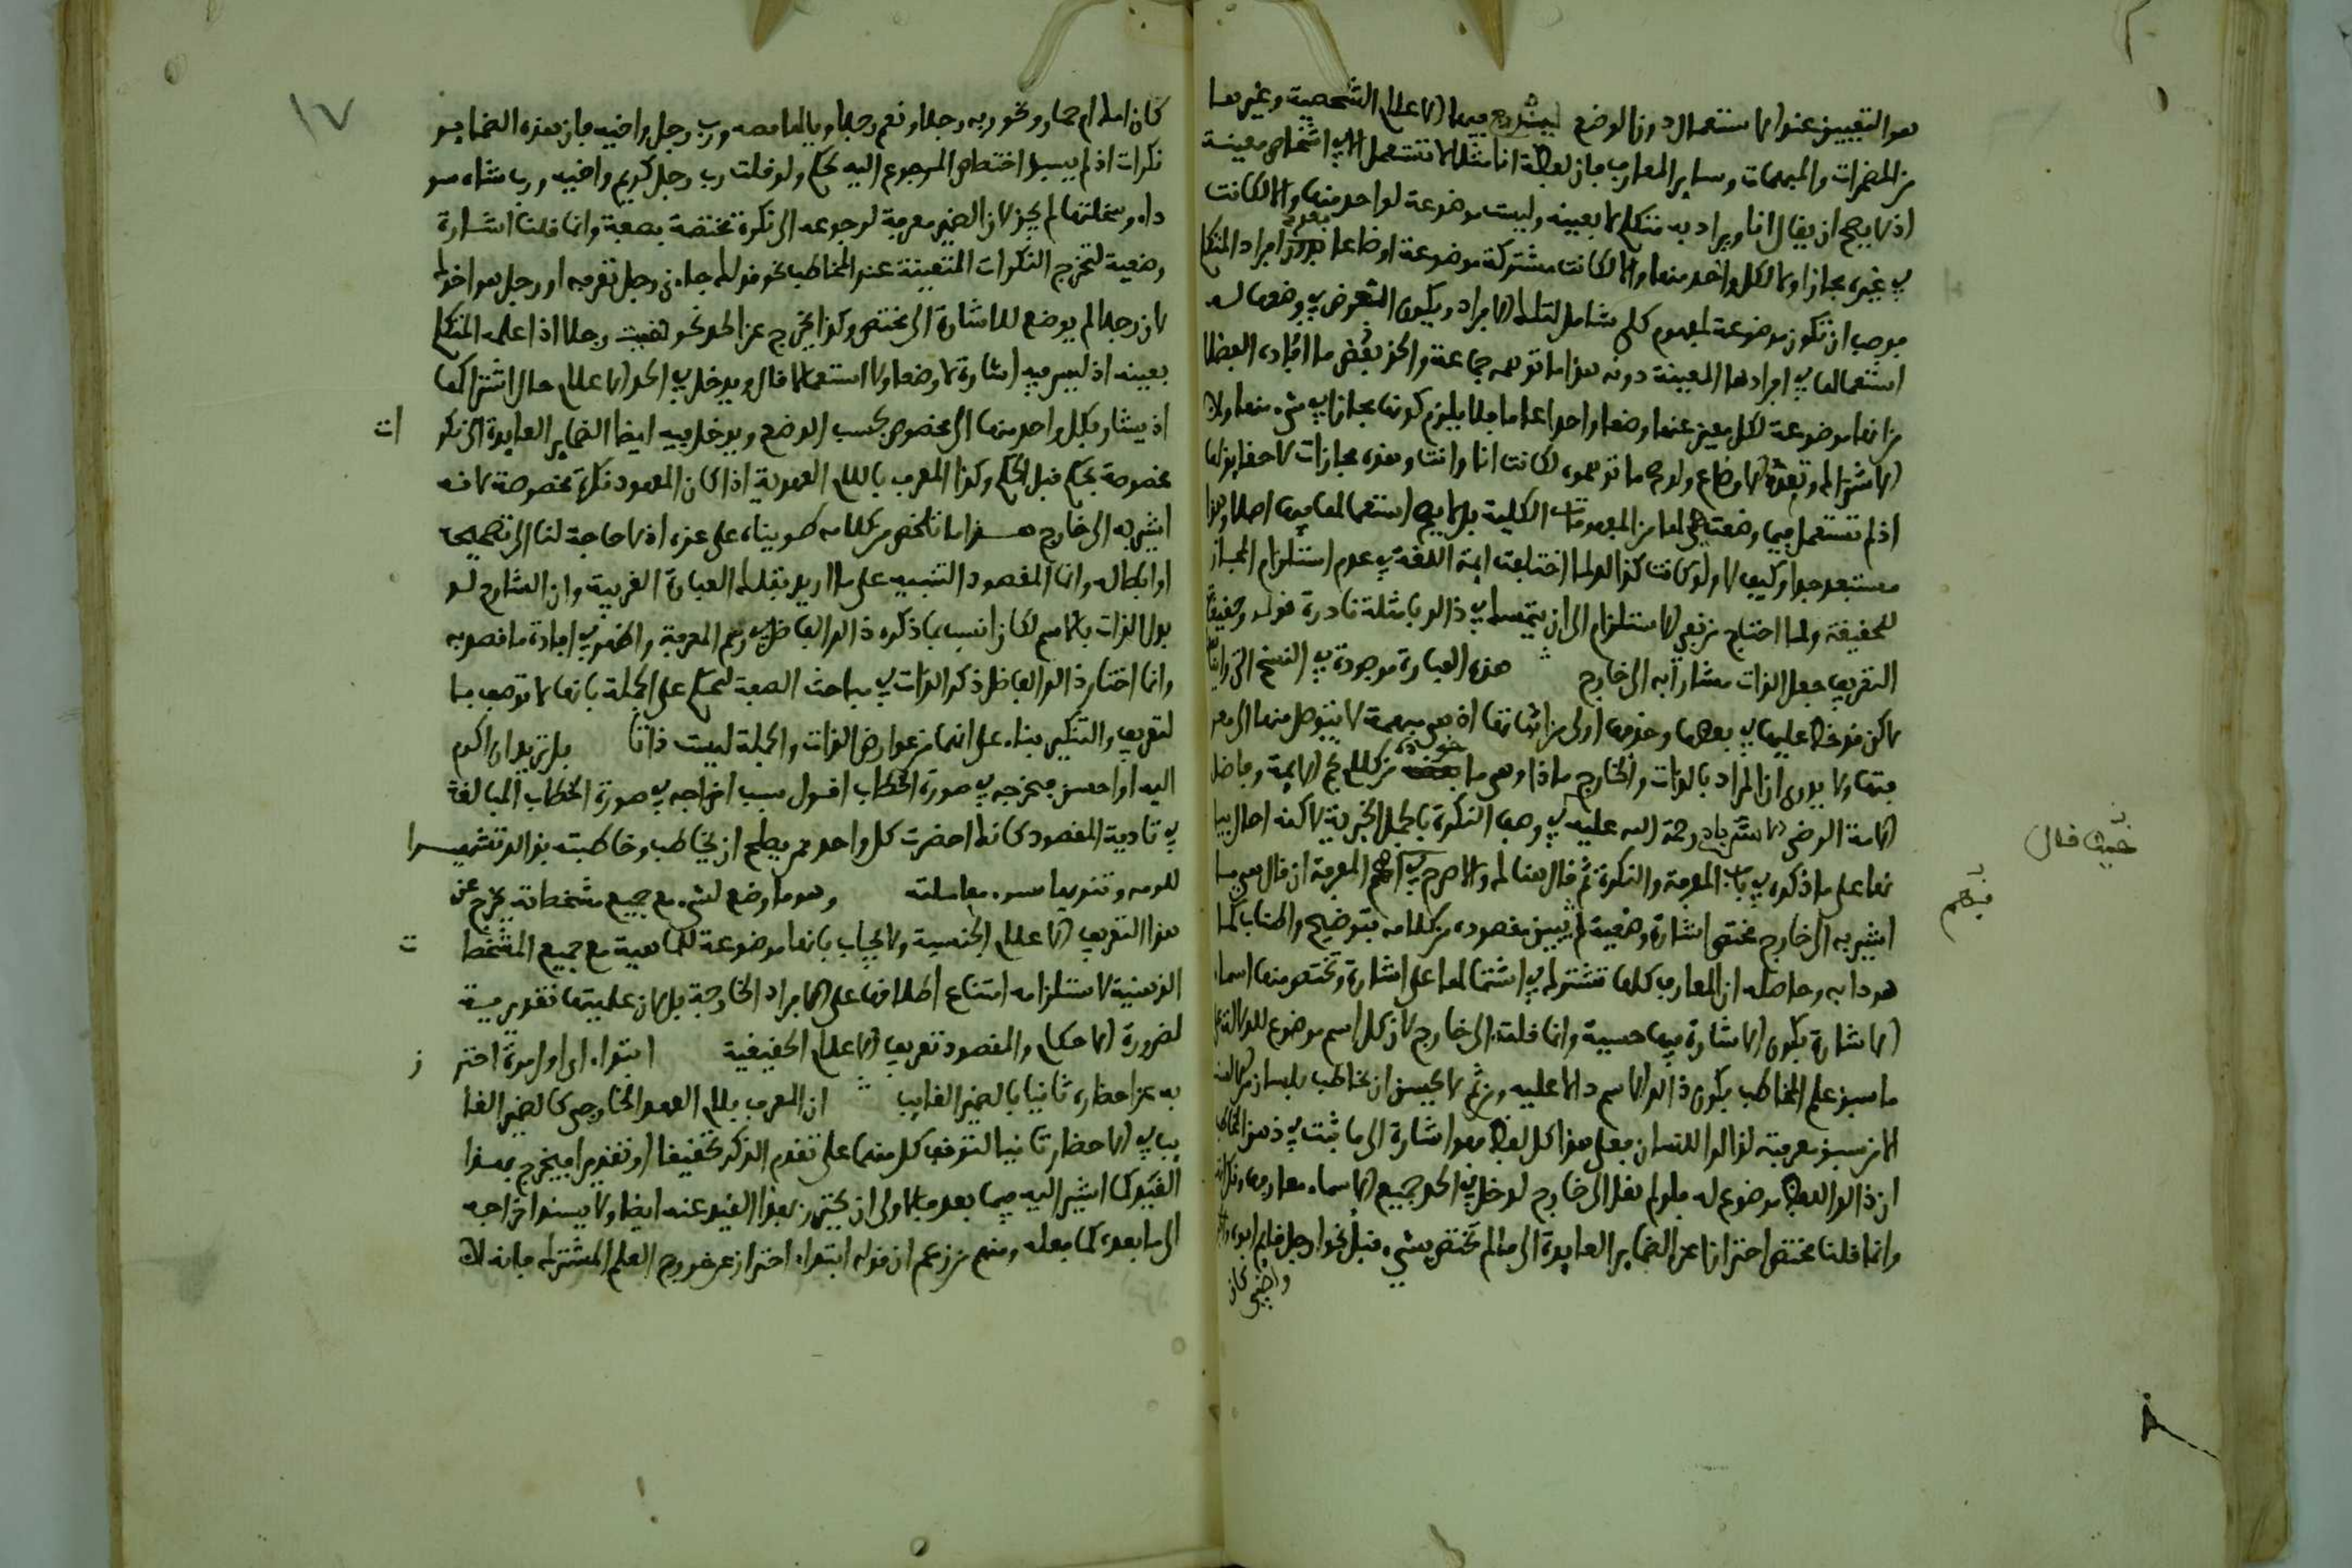 هو التعيين عند الاستعمال دون الوضع ليندرج فيها الاعلام الشخصية وغيرها
من المضمرات والمبهمات وساير المعارف فان لفظة انا مثلا لا تستعمل الا في اشخاص معينة
اذ لا يصح ان يقال انا ويراد به متكلم لا بعينه وليست موضوعة لواحد منها والا لكانت
في غيره مجازا ولا لكل واحد منها والا لكانت مشتركة موضوعة اوضاعا بعدد افراد المتكلم
فوجب ان تكون موضوعة لمفهوم كلي شامل لتلك الافراد ويكون الغرض في وضعها له
استعمالها في افرادها المعينة دونه هذا ما توهمه جماعة والحق بعض ما افاده الفضلا
من انها موضوعة لكل معين منها وضعا واحدا عاما فلا يلزم كونها مجازا في شيء منها ولا
الاشتراك وتعدد الاوضاع ولو صح ما توهموه لكانت انا وانت وهذه مجازات لا حقايق لها
اذ لم تستعمل فيما وضعت هي لها من المفهومات الكلية بل لا يصح استعمالها فيها اصلا وهذا
مستبعد جدا وكيف لا ولو كانت كذلك لما اختلفت ايمة اللغة في عدم استلزام المجاز
للحقيقة ولما احتاج من نفى الاستلزام الى ان يتمسك في ذلك بامثلة نادرة قوله وحقيقة
التعريف جعل الذات مشارا به الى خارج هذه العبارة موجودة في النسخ التي رايناها
لاكن قد خط عليها في بعضها وحذفها اولى من اثباتها اذ هي مبهمة لا يتوصل منها الى معر
فتها ولا يدرى ان المراد بالذات والخارج ماذا وهي ماخوذة من كلام نجم الايمة وفاضل
الامة الرضي الاستراباذي رحمة الله عليه في وصف النكرة بالجمل الخبرية لاكنه احال بيا
نها على ما ذكره في باب المعرفة والنكرة ثم قال هنالك والاصرح في رسم المعرفة ان يقال هي ما
اشير به الى خارج مختص اشارة وضعية ثم يبين مقصوده من كلامه بتوضيح واطناب كما
هو دابه وحاصله ان المعارف كلها تشترك في اشتمالها على اشارة وتختص منها اسما
الاشارة بكون الاشارة فيها حسية وانما قلت الى خارج لان كل اسم موضوع للدلالة على
ما سبق علم المخاطب بكون ذلك الاسم دالا عليه ومن ثم لا يحسن ان يخاطب بلسان من الالسنة
الا من سبق معرفته لذلك اللسان فعلى هذا كل لفظ فهو اشارة الى ما ثبت في ذهن المخاطب
ان ذلك اللفظ موضوع له فلو لم نقل الى خارج لدخل في الحد جميع الاسماء معارفها ونكراتها
وانما قلنا مختص احترازا عن الضماير العايدة الى ما لم يختص بشيء قبل نحو ارجل قايم ابوه
واظبي كان
حيث قال
١٧
كان امك ام حمار ونحو ربه رجلا ونعم رجلا ويا لها قصة ورب رجل واخيه فان هذه الضماير
نكرات اذ لم يسبق اختصاص المرجوع اليه بحكم ولو قلت رب رجل كريم واخيه ورب شاة سو
داء وسخلتها لم يجز لان الضمير معرفة لرجوعه الى نكرة مختصة بصفة وانما قلنا اشارة
وضعية لتخرج النكرات المتعينة عند المخاطب نحو قولك جاءني رجل تعرفه او رجل هو اخوك
لان رجلا لم يوضع للاشارة الى مختص وكذا يخرج عن الحد نحو لقيت رجلا اذا علمه المتكلم
بعينه اذ ليس فيه اشارة لا وضعا ولا استعمالا قال ويدخل في الحد الاعلام حال اشتراكها
اذ يشار بكل واحد منها الى مخصوص بحسب الوضع ويدخل فيه ايضا الضماير العايدة الى نكرات
مخصوصة بحكم قبل الحكم وكذا المعرف باللام العهدية اذا كان المعهود نكرة مخصوصة لانه
اشير به الى خارج هذا ما تلخص من كلامه طويناه على غره اذ لا حاجة لنا الى تصحيحه
او ابطاله وانما المقصود التنبيه على ما اريد بتلك العبارة الغريبة وان الشارح لو
بدل الذات بالاسم لكان انسب بما ذكره ذلك الفاضل في رسم المعرفة واظهر في افادة ما قصد به
وانما اختار ذلك الفاضل ذكر الذات في مباحث الصفة ليحكم على الجملة بانها لا توصف با
لتعريف والتنكير بناء على انهما من عوارض الذات والجملة ليست ذاتا بل تريد ان اكرم
اليه او احسن فتخرجه في صورة الخطاب اقول سبب اخراجه في صورة الخطاب المبالغة
في تادية المقصود كانك احضرت كل واحد ممن يصلح ان يخاطب وخاطبته بذلك تشهيرا
للومه وتنويها سوء معاملته وهو ما وضع لشيء مع جميع مشخصاته يخرج عن
هذا التعريف الاعلام الجنسية ولا يجاب بانها موضوعة للماهية مع جميع المشخصات
الذهنية لاستلزامه امتناع اطلاقها على الافراد الخارجة بل لان علميتها تقديرية
لضرورة الاحكام والمقصود تعريف الاعلام الحقيقية ابتداء اى اول مرة احترز
به عن احضاره ثانيا بالضمير الغايب ان المعرف بلام العهد الخارجي كالضمير الغا
يب في الاحضار ثانيا لتوقف كل منهما على تقدم الذكر تحقيقا او تقديرا فيخرج بهذا
القيد كما اشير اليه فيما بعد فالاولى ان يحترز بهذا القيد عنه ايضا ولا يسند اخراجه
الى ما بعده كما فعله ومنهم من زعم ان قوله ابتداء احتراز عن خروج العلم المشترك فانه لا